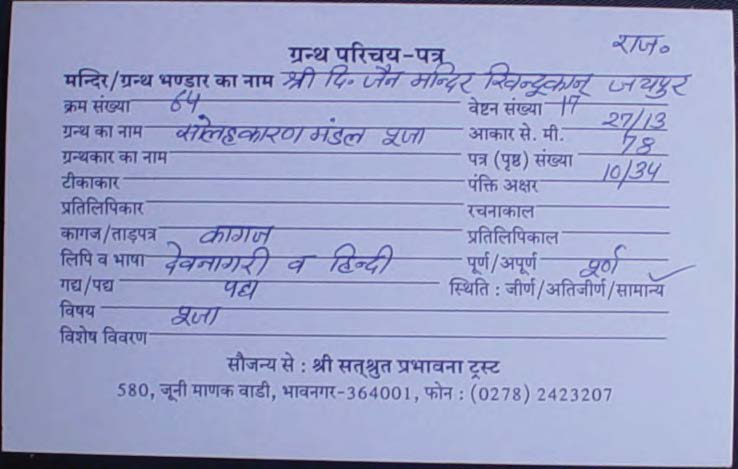 राज०
ग्रन्थ परिचय-पत्र
मन्दिर/ग्रन्थ भण्डार का नाम श्री दि. जैन मन्दिर खिन्दूकान् जयपुर
क्रम संख्या 64 वेष्टन संख्या 17
ग्रन्थ का नाम सोलहकारण मंडल पूजा आकार से. मी. 27/13
ग्रन्थकार का नाम पत्र (पृष्ठ) संख्या 78
टीकाकार पंक्ति अक्षर 10/34
प्रतिलिपिकार रचनाकाल
कागज/ताड़पत्र कागज प्रतिलिपिकाल
लिपि व भाषा देवनागरी व हिन्दी पूर्ण/अपूर्ण पूर्ण
गद्य/पद्य पद्य स्थिति : जीर्ण/अतिजीर्ण/सामान्य ✓
विषय पूजा
विशेष विवरण
सौजन्य से : श्री सत्श्रुत प्रभावना ट्रस्ट
580, जूनी माणक वाडी, भावनगर-364001, फोन : (0278) 2423207